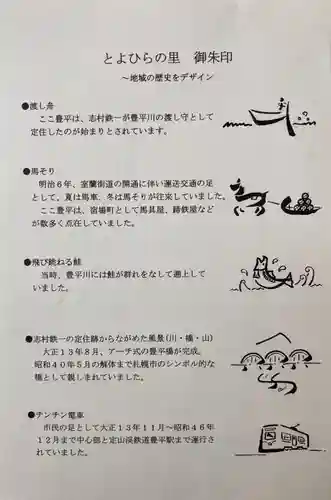 とよひらの里　御朱印
～地域の歴史をデザイン
●渡し舟
ここ豊平は、志村鉄一が豊平川の渡し守として
定住したのが始まりとされています。
●馬そり
明治６年、室蘭街道の開通に伴い運送交通の足
として、夏は馬車、冬は馬そりが往来していました。
ここ豊平は、宿場町として馬具屋、蹄鉄屋など
が数多く点在していました。
●飛び跳ねる鮭
当時、豊平川には鮭が群れをなして遡上して
いました。
●志村鉄一の定住跡からながめた風景（川・橋・山）
大正１３年８月、アーチ式の豊平橋が完成。
昭和４０年５月の解体まで札幌市のシンボル的な
橋として親しまれていました。
●チンチン電車
市民の足として大正１３年１１月～昭和４６年
１２月まで中心部と定山渓鉄道豊平駅まで運行さ
れていました。